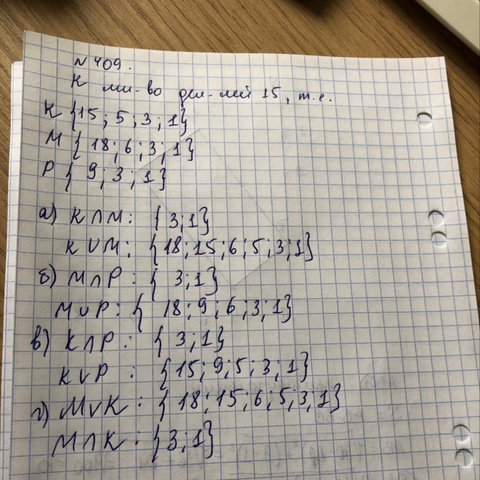 № 409.
К мн-во дел-лей 15, т.е.
К {15; 5; 3; 1}
М {18; 6; 3; 1}
Р { 9; 3; 1}
а) К∩М: {3;1}
К∪М: {18;15;6;5;3;1}
б) М∩Р: { 3;1}
М∪Р: { 18;9;6;3;1}
в) К∩Р: {3;1}
К∪Р : {15;9;5;3,1}
г) М∪К: {18;15;6;5;3,1}
М∩К: {3;1}